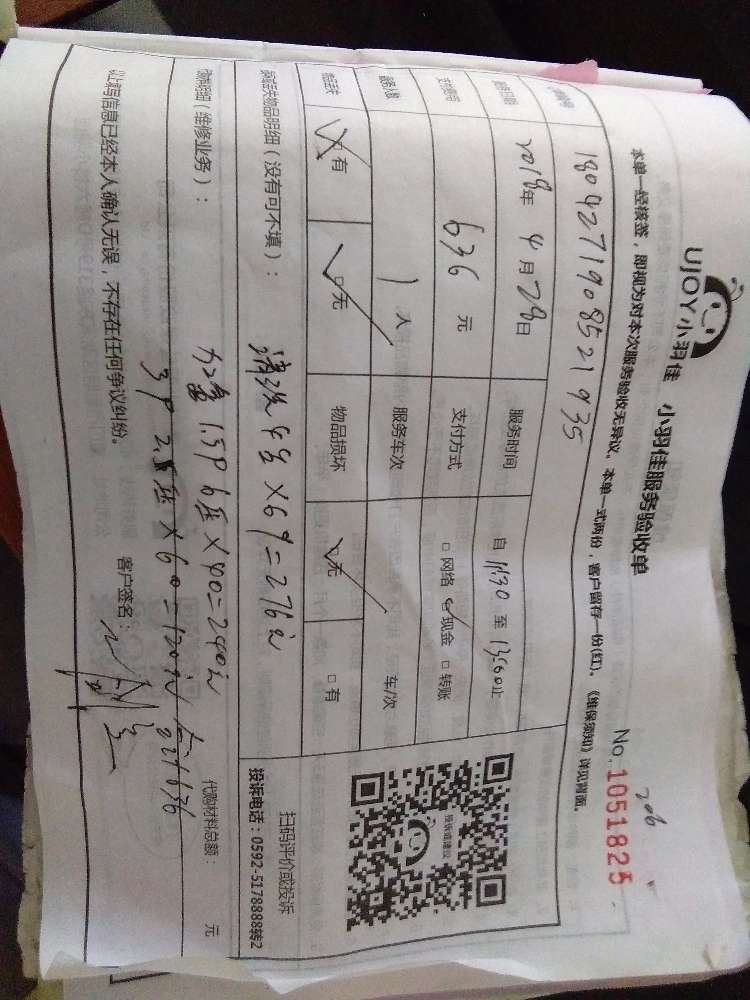 UJOY小羽佳 小羽佳服务验收单
206
No.1051825
本单一经核签，即视为对本次服务验收无异议。本单一式两份，客户留存一份(红)。《维保须知》详见背面。
180427190852 1935
服务日期 2018年4月28日 服务时间 自11:30至13:60止
支付费用 636元 支付方式 □网络 ☑现金 □转账
服务人数 1人 服务车次 车/次
物品丢失 □有 ☑无 物品损坏 ☑无 □有
损坏丢失物品明细（没有可不填）： 清洗4台×69=276元
代购明细（维修业务）： 加氟1.5P 6压×40=240元
3P 2.5压×60=120元 合计636
代购材料总额： 元
投诉或建议
扫码评价或投诉
投诉电话：0592-5178888转2
以上填写信息已经本人确认无误，不存在任何争议纠纷。 客户签名：